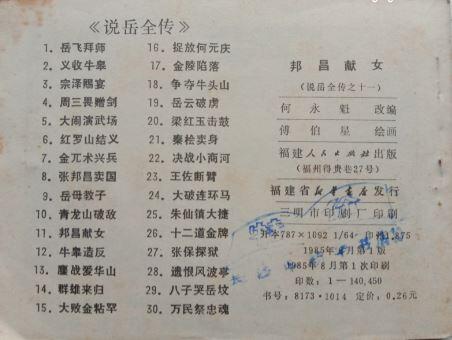 《说岳全传》
1. 岳飞拜师
2. 义收牛皋
3. 宗泽赐宴
4. 周三畏赠剑
5. 大闹演武场
6. 红罗山结义
7. 金兀术兴兵
8. 张邦昌卖国
9. 岳母教子
10. 青龙山破敌
11. 邦昌献女
12. 牛皋造反
13. 鏖战爱华山
14. 群雄来归
15. 大败金粘罕
16. 捉放何元庆
17. 金陵陷落
18. 争夺牛头山
19. 岳云破虏
20. 梁红玉击鼓
21. 秦桧卖身
22. 决战小商河
23. 王佐断臂
24. 大破连环马
25. 朱仙镇大捷
26. 十二道金牌
27. 张保探狱
28. 遗恨风波亭
29. 八子哭岳坟
30. 万民祭忠魂
邦昌献女
(说岳全传之十一)
何永魁 改编
傅伯星 绘画
福建人民出版社出版
(福州得贵巷27号)
福建省新华书店发行
三明市印刷厂印刷
开本787×1092 1/64 印张1.875
1985年 月第1版
1985年8月第1次印刷
印数:1—140,450
书号:8173·1014 定价:0.26元